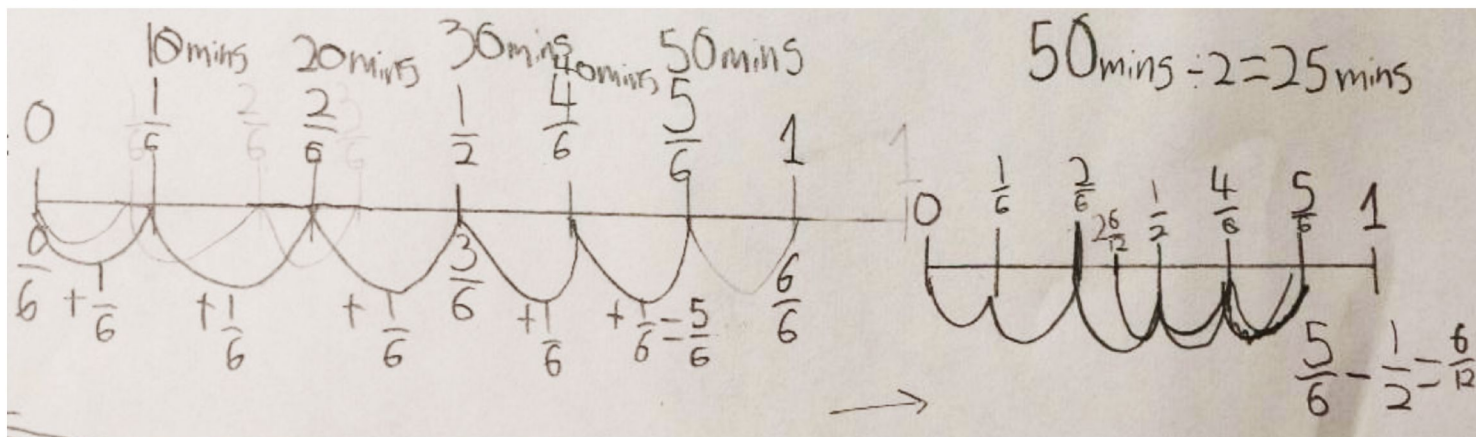 10mins 20mins 30mins 40mins 50mins
0 1/6 2/6 1/2 4/6 5/6 1
0/6 3/6 6/6
+1/6 +1/6 +1/6 +1/6 +1/6=5/6
50mins÷2=25mins
0 1/6 2/6 1/2 4/6 5/6 1
5/6-1/2=6/12